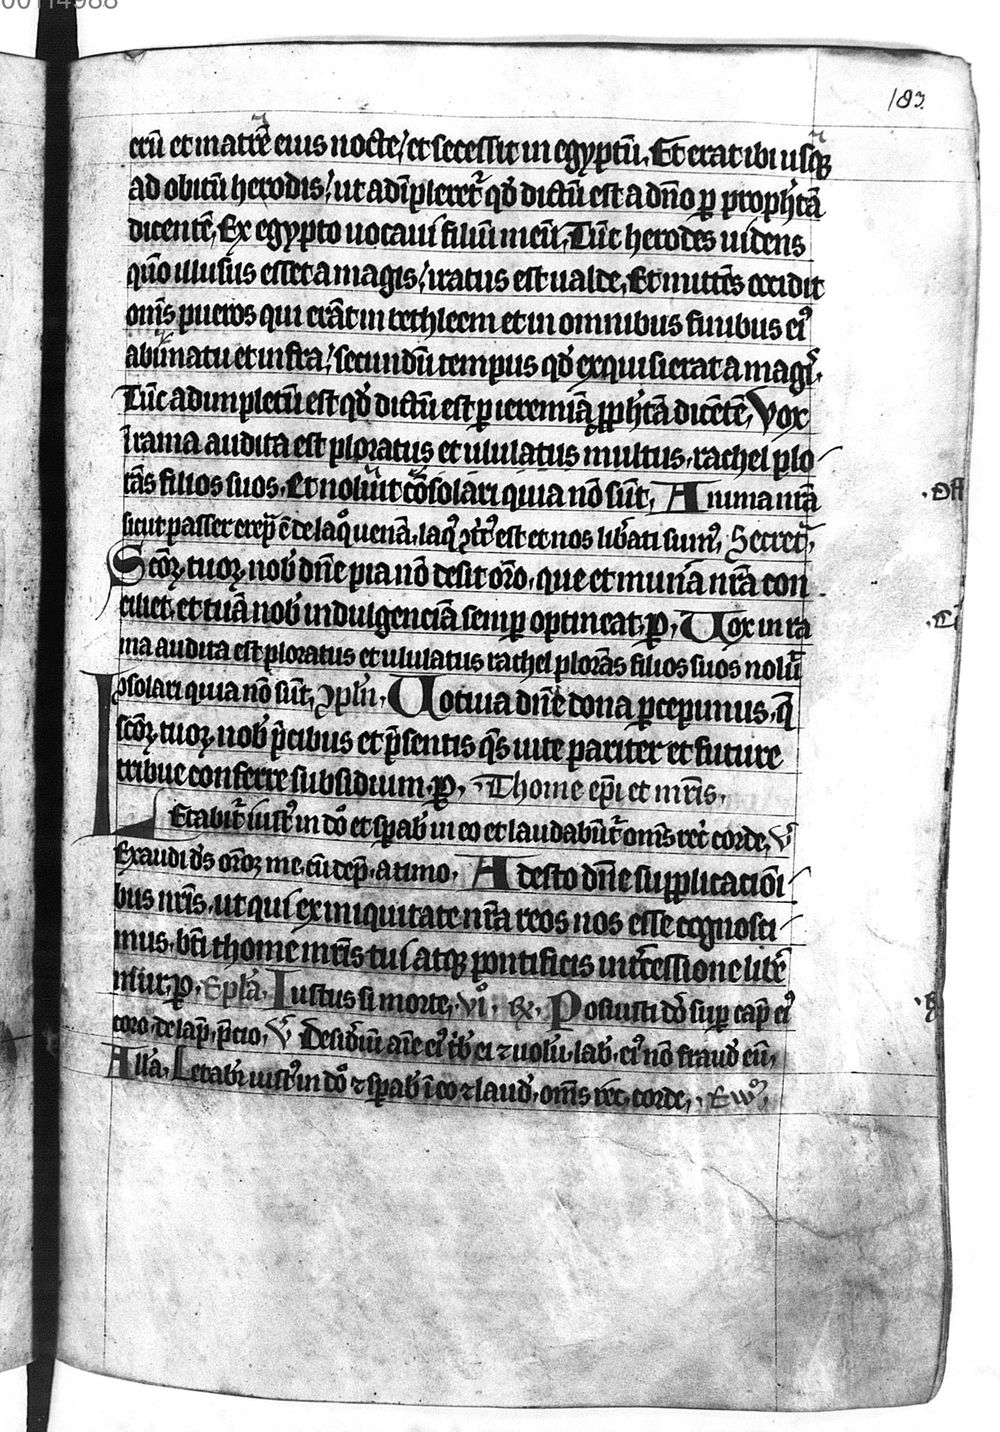 00114988
183
erū et matrē eius nocte / et secessit in egyptū. Et erat ibi usqꝫ
ad obitū herodis / ut adīpleret᷑ qd̓ dictū est a dn̄o ꝑ proph̓tā
dicentē, Ex egypto uocaui filiū meū, Tūc herodes uidens
qm̄ illusus esset a magis / iratus est ualde, Et mittēs occidit
om̄s pueros qui erāt in bethleem et in omnibus finibus eiꝰ
a bimatu et infra / secundū tempus qd̓ exquisierat a magꝭ.
Tūc adimpletū est qd̓ dictū est ꝑ ieremiā ꝓph̓tā dicētē, Vox
ī rama audita est ploratus et ululatus multus. rachel plo
rās filios suos. Et noluit cōsolari quia nō sūt, Anima nr̄a
.Off
sicut passer erep̄ ē de laq̊ uenā. laqꝰ ꝯtͥtꝰ est et nos lib̓ati sumꝰ, Secret᷑,
Scōꝝ tuoꝝ nob̓ dn̄e pia nō desit or̄o. que et mun̄a nr̄a con
ciliet. et tuā nob̓ indulgenciā semꝑ optineat. ꝑ, Uox in ra
.Cō
ma audita est ploratus et ululatus rachel plorās filios suos nolū
ꝯsolari quia nō sūt, ꝯpl̄n, Uotiua dn̄e dona ꝑcepimus. q̄
scōꝝ tuoꝝ nob̓ p̄cibus et p̄sentis q̄s uite pariter et future
tribue conferre subsidium. ꝑ, Thome ep̄i et mr̄is,
Letabit᷑ iustꝰ in dō et sꝑab̓ in eo et laudabūt᷑ om̄s rec̓ corde, ℣
Exaudi d̄s or̄oꝫ me. cū dep̄. a timo, Adesto dn̄e supplicacōi
bus nr̄is. ut qui ex iniquitate nr̄a reos nos esse cognosci
mus. bt̄i thome mr̄is tui atqꝫ pontificis int̓cessione libē
miur. ꝑ, Epl̄a, Iustus si morte, vi, ℟, Posuisti dō suꝑ cap̄ eiꝰ
coro. de lap̄. p̄cio, ℣ Desid̓iū aīe eiꝰ tͥb̓ ei ⁊ uolū. lab̓. eiꝰ nō fraud̓ eū,
All̓a, Letab̓t iustꝰ in dō ⁊ sꝑab̓ ī eo ⁊ laud̓. om̄s rec̓. corde,